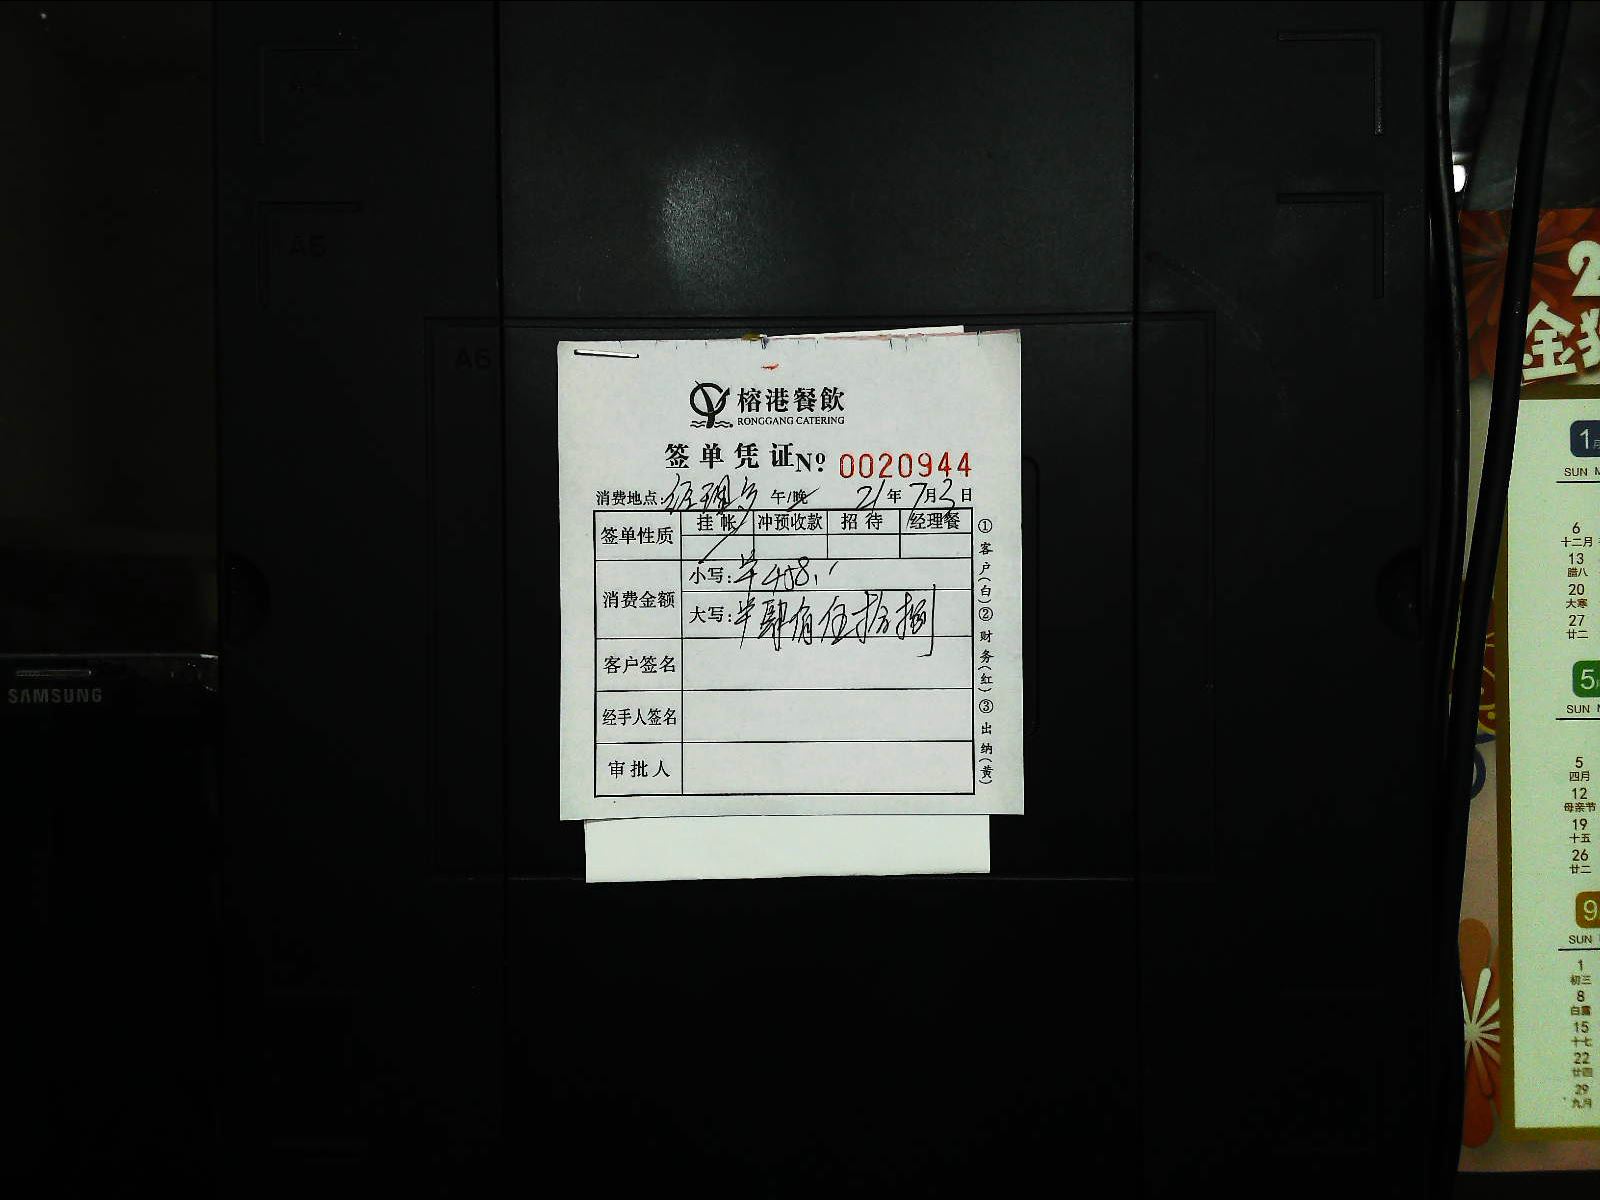 A5
A6
SAMSUNG
榕港餐飲
RONGGANG CATERING
签单凭证 Nº 0020944
消费地点: 午/晚 21年7月3日
签单性质 挂帐 冲预收款 招待 经理餐
消费金额 小写: ¥458.
大写: 肆佰伍拾捌
客户签名
经手人签名
审批人
①客户(白)②财务(红)③出纳(黄)
金
1
SUN
6
十二月
13
腊八
20
大寒
27
廿二
5
SUN
5
四月
12
母亲节
19
十五
26
廿二
9
SUN
1
初三
8
白露
15
十七
22
廿四
29
九月